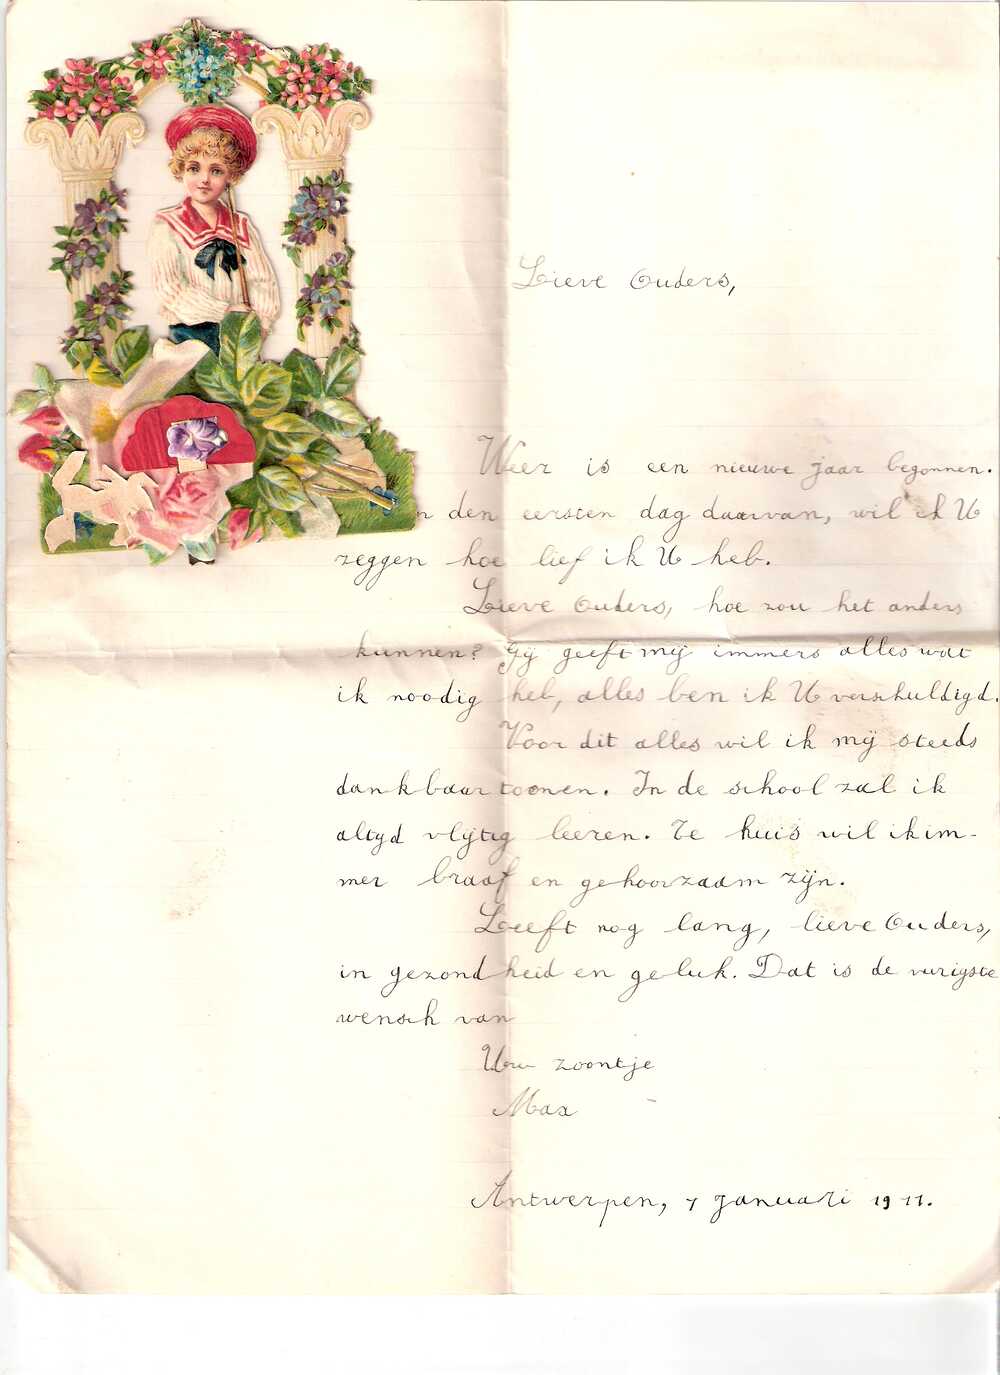 Lieve Ouders,
Weer is een nieuwe jaar begonnen.
n den eersten dag daarvan, wil ik U
zeggen hoe lief ik U heb.
Lieve Ouders, hoe zou het anders
kunnen? Gij geeft mij immers alles wat
ik noodig heb, alles ben ik U verschuldigd.
Voor dit alles wil ik mij steeds
dankbaar toonen. In de school zal ik
altyd vlijtig leeren. Te huis wil ik im-
mer braaf en gehoorzaam zijn.
Leeft nog lang, lieve Ouders,
in gezondheid en geluk. Dat is de vurigste
wensch van
Uw zoontje
Max
Antwerpen, 1 januari 1911.